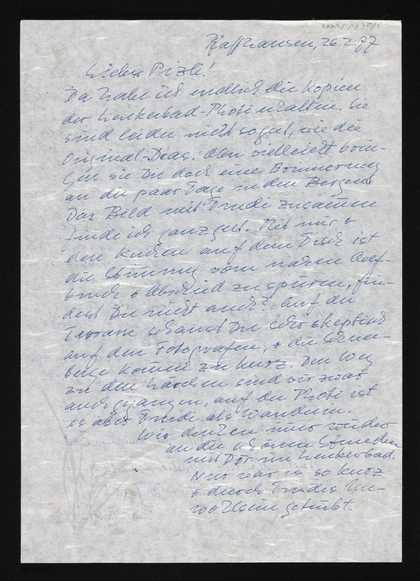 Schaffhausen, 26.2.87
Lieber Pizzli!
Da habe ich endlich die Kopien
der Leukerbad-Photi erhalten. Sie
sind leider nicht so gut, wie die
Original-Dias. Aber vielleicht brin-
gen sie Dir doch eine Erinnerung
an die paar Tage in den Bergen.
Das Bild mit Trudi zusammen
finde ich ganz gut. Mit mir +
den auf dem ist
die Stimmung vom nahen Auf-
bruch + Abschied zu spüren, fin-
dest Du nicht auch? Auf der
Terrasse schaust Du sehr skeptisch
auf den Fotografen, + die
beine kommen zu kurz. Den Weg
zu den sind wir zwar
auch gegangen, auf der Photi ist
es aber Trudi als Wanderin.
Wir denken immer wieder
an die schönen Stunden
mit Dir in Leukerbad.
Nur war es so kurz
+ durch Trudis Un-
wohlsein getrübt.